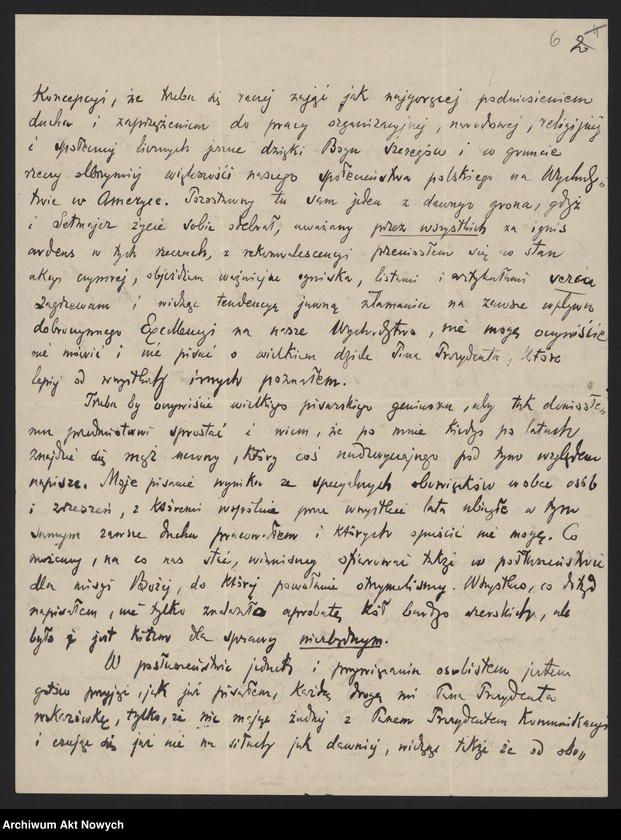 6 2
Koncepcyi, że trzeba się raczej zająć jak najgoręcej podniesieniem
ducha i zaprzężeniem do pracy organizacyjnej, narodowej, religijnej
i społecznej licznych jeszcze dzięki Bogu szeregów i w gruncie
rzeczy olbrzymiej większości naszego społeczeństwa polskiego na Wychodź„
twie w Ameryce. Pozostawszy tu sam jeden z dawnego grona, gdyż
i Setmajer życie sobie odebrał, uważany przez wszystkich za ignis
ardens w tych rzeczach, z rekonwalescencyi przeniosłem się w stan
akcyi czynnej, objeżdżam ważniejsze ogniska, listami i artykułami serca
zagrzewam i widząc tendencyę jawną złamania na zawsze wpływu
dobroczynnego Excellencyi na nasze Wychodztwo, nie mogę oczywiście
nie mówić i nie pisać o wielkiem dziele Pana Prezydenta, które
lepiej od wszystkich innych poznałem.
Trzeba by oczywiście wielkiego pisarskiego geniuszu, aby tak doniosłe„
mu przedmiotowi sprostać i wiem, że po mnie kiedyś po latach
znajdzie się mąż uczony, który coś nadzwyczajnego pod tym względem
napisze. Moje pisanie wynika ze specyalnych obowiązków wobec osób
i zrzeszeń, z któremi wspólnie przez wszystkie lata ubiegłe w tym
samym zawsze duchu pracowałem i których opuścić nie mogę. Co
możemy, na co nas stać, winniśmy ofiarować także w posłuszeństwie
dla misyi Bożej, do której powołanie otrzymaliśmy. Wszystko, co dotąd
napisałem, nie tylko znalazło aprobatę kół bardzo szerokich, ale
było i jest kitem dla sprawy niezbędnym.
W posłuszeństwie jednak i przywiązaniu osobistem jestem
gotów przyjąć, jak już pisałem, każdą drogą mi Pana Prezydenta
wskazówkę, tylko, że nie mając żadnej z Panem Prezydentem Komunikacyi
i czując się już nie na siłach jak dawniej, widząc także że od obo„
Archiwum Akt Nowych